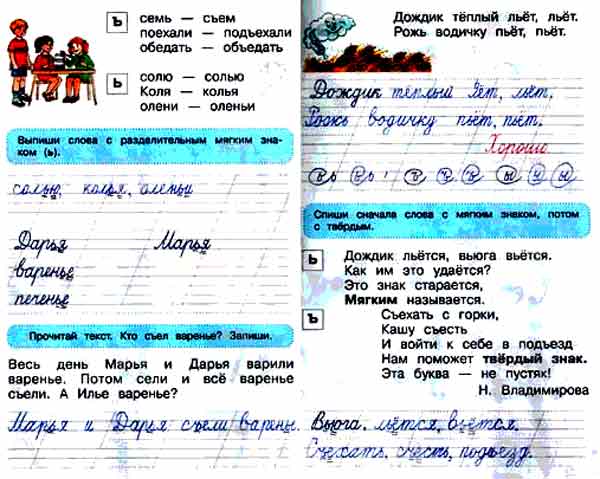 ъ
семь — съем
поехали — подъехали
обедать — объедать
ь
солю — солью
Коля — колья
олени — оленьи
Выпиши слова с разделительным мягким зна-
ком (ь).
солью, колья, оленьи
Дарья Марья
варенье
печенье
Прочитай текст. Кто съел варенье? Запиши.
Весь день Марья и Дарья варили
варенье. Потом сели и всё варенье
съели. А Илье варенье?
Марья и Дарья съели варень.
Дождик тёплый льёт, льёт.
Рожь водичку пьёт, пьёт.
Дождик тёплый льёт, льёт,
Рожь водичку пьёт, пьёт.
Хорошо
Спиши сначала слова с мягким знаком, потом
с твёрдым.
ь
Дождик льётся, вьюга вьётся.
Как им это удаётся?
Это знак старается,
Мягким называется.
ъ
Съехать с горки,
Кашу съесть
И войти к себе в подъезд
Нам поможет твёрдый знак.
Эта буква — не пустяк!
Н. Владимирова
Вьюга, льётся, вьётся.
Съехать, съесть, подъезд.